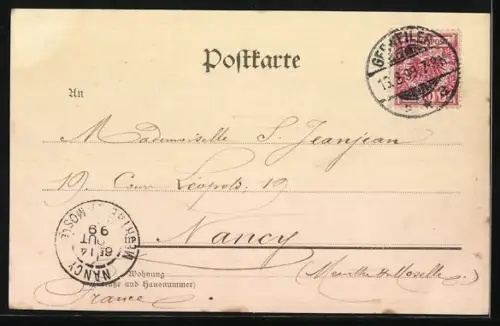 Postkarte
GEBWEILER
13.8.99.7-8N.
An
Mademoiselle S. Jeanjean
19. Cours Léopold, 19
Nancy
(Meurthe & Moselle)
NANCY
14
AOUT
99
Wohnung
(Straße und Hausnummer)
France